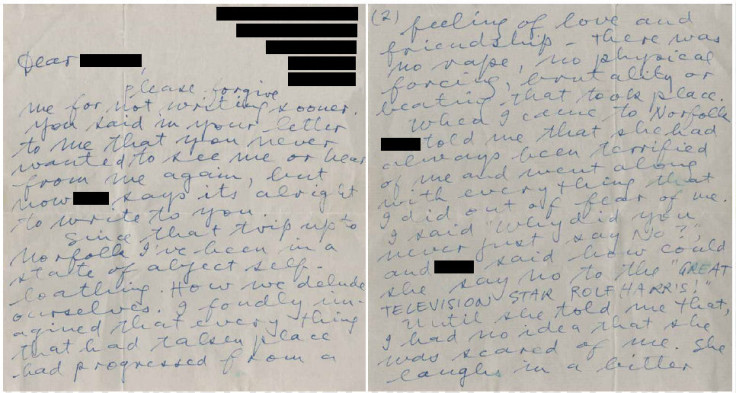 Dear
please forgive
me for not writing sooner.
You said in your letter
to me that you never
wanted to see me or hear
from me again, but
now says its alright
to write to you.
Since that trip up to
Norfolk I've been in a
state of abject self-
loathing. How we delude
ourselves. I fondly im-
agined that everything
that had taken place
had progressed from a
(2)
feeling of love and
friendship - there was
no rape, no physical
forcing, brutality or
beating that took place.
When I came to Norfolk
told me that she had
always been terrified
of me and went along
with everything that
I did out of fear of me.
I said "Why did you
never just say No?",
and said how could
she say no to the "GREAT
TELEVISION STAR, ROLF HARRIS!"
Until she told me that,
I had no idea that she
was scared of me. She
laughs in a bitter